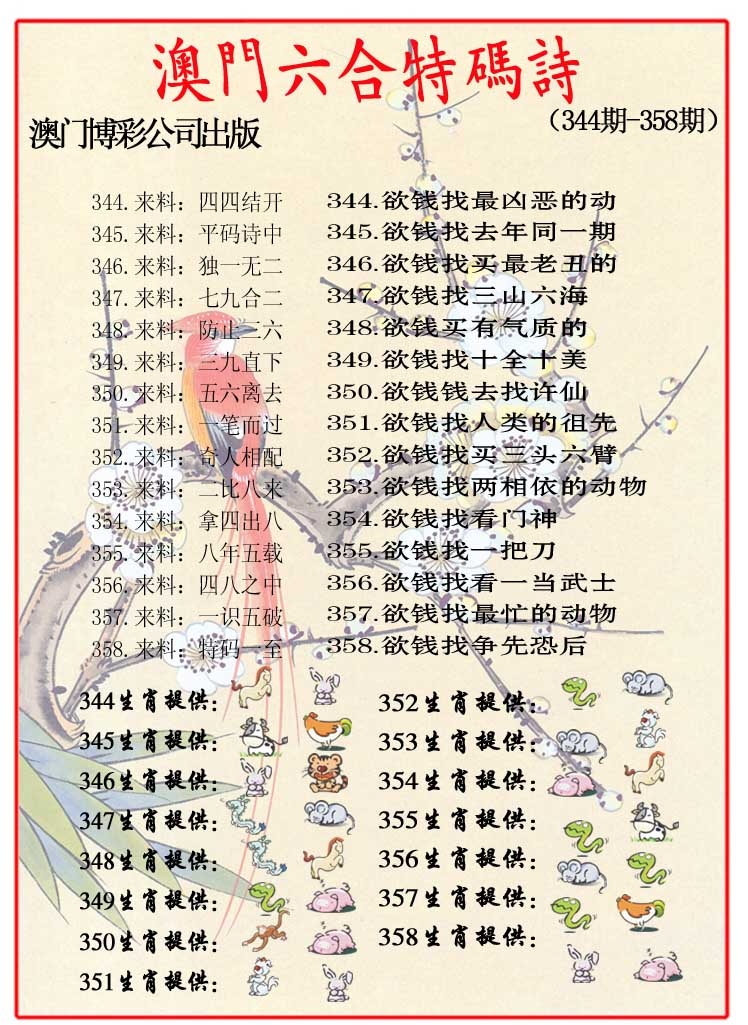 澳門六合特碼詩
澳门博彩公司出版
（344期-358期）
344.来料：四四结开 344.欲钱找最凶恶的动
345.来料：平码诗中 345.欲钱找去年同一期
346.来料：独一无二 346.欲钱找买最老丑的
347.来料：七九合二 347.欲钱找三山六海
348.来料：防止二六 348.欲钱买有气质的
349.来料：三九直下 349.欲钱找十全十美
350.来料：五六离去 350.欲钱钱去找许仙
351.来料：一笔而过 351.欲钱找人类的祖先
352.来料：奇人相配 352.欲钱找买三头六臂
353.来料：二比八来 353.欲钱找两相依的动物
354.来料：拿四出八 354.欲钱找看门神
355.来料：八年五载 355.欲钱找一把刀
356.来料：四八之中 356.欲钱找看一当武士
357.来料：一识五破 357.欲钱找最忙的动物
358.来料：特码一至 358.欲钱找争先恐后
344生肖提供：
345生肖提供：
346生肖提供：
347生肖提供：
348生肖提供：
349生肖提供：
350生肖提供：
351生肖提供：
352生肖提供：
353生肖提供：
354生肖提供：
355生肖提供：
356生肖提供：
357生肖提供：
358生肖提供：